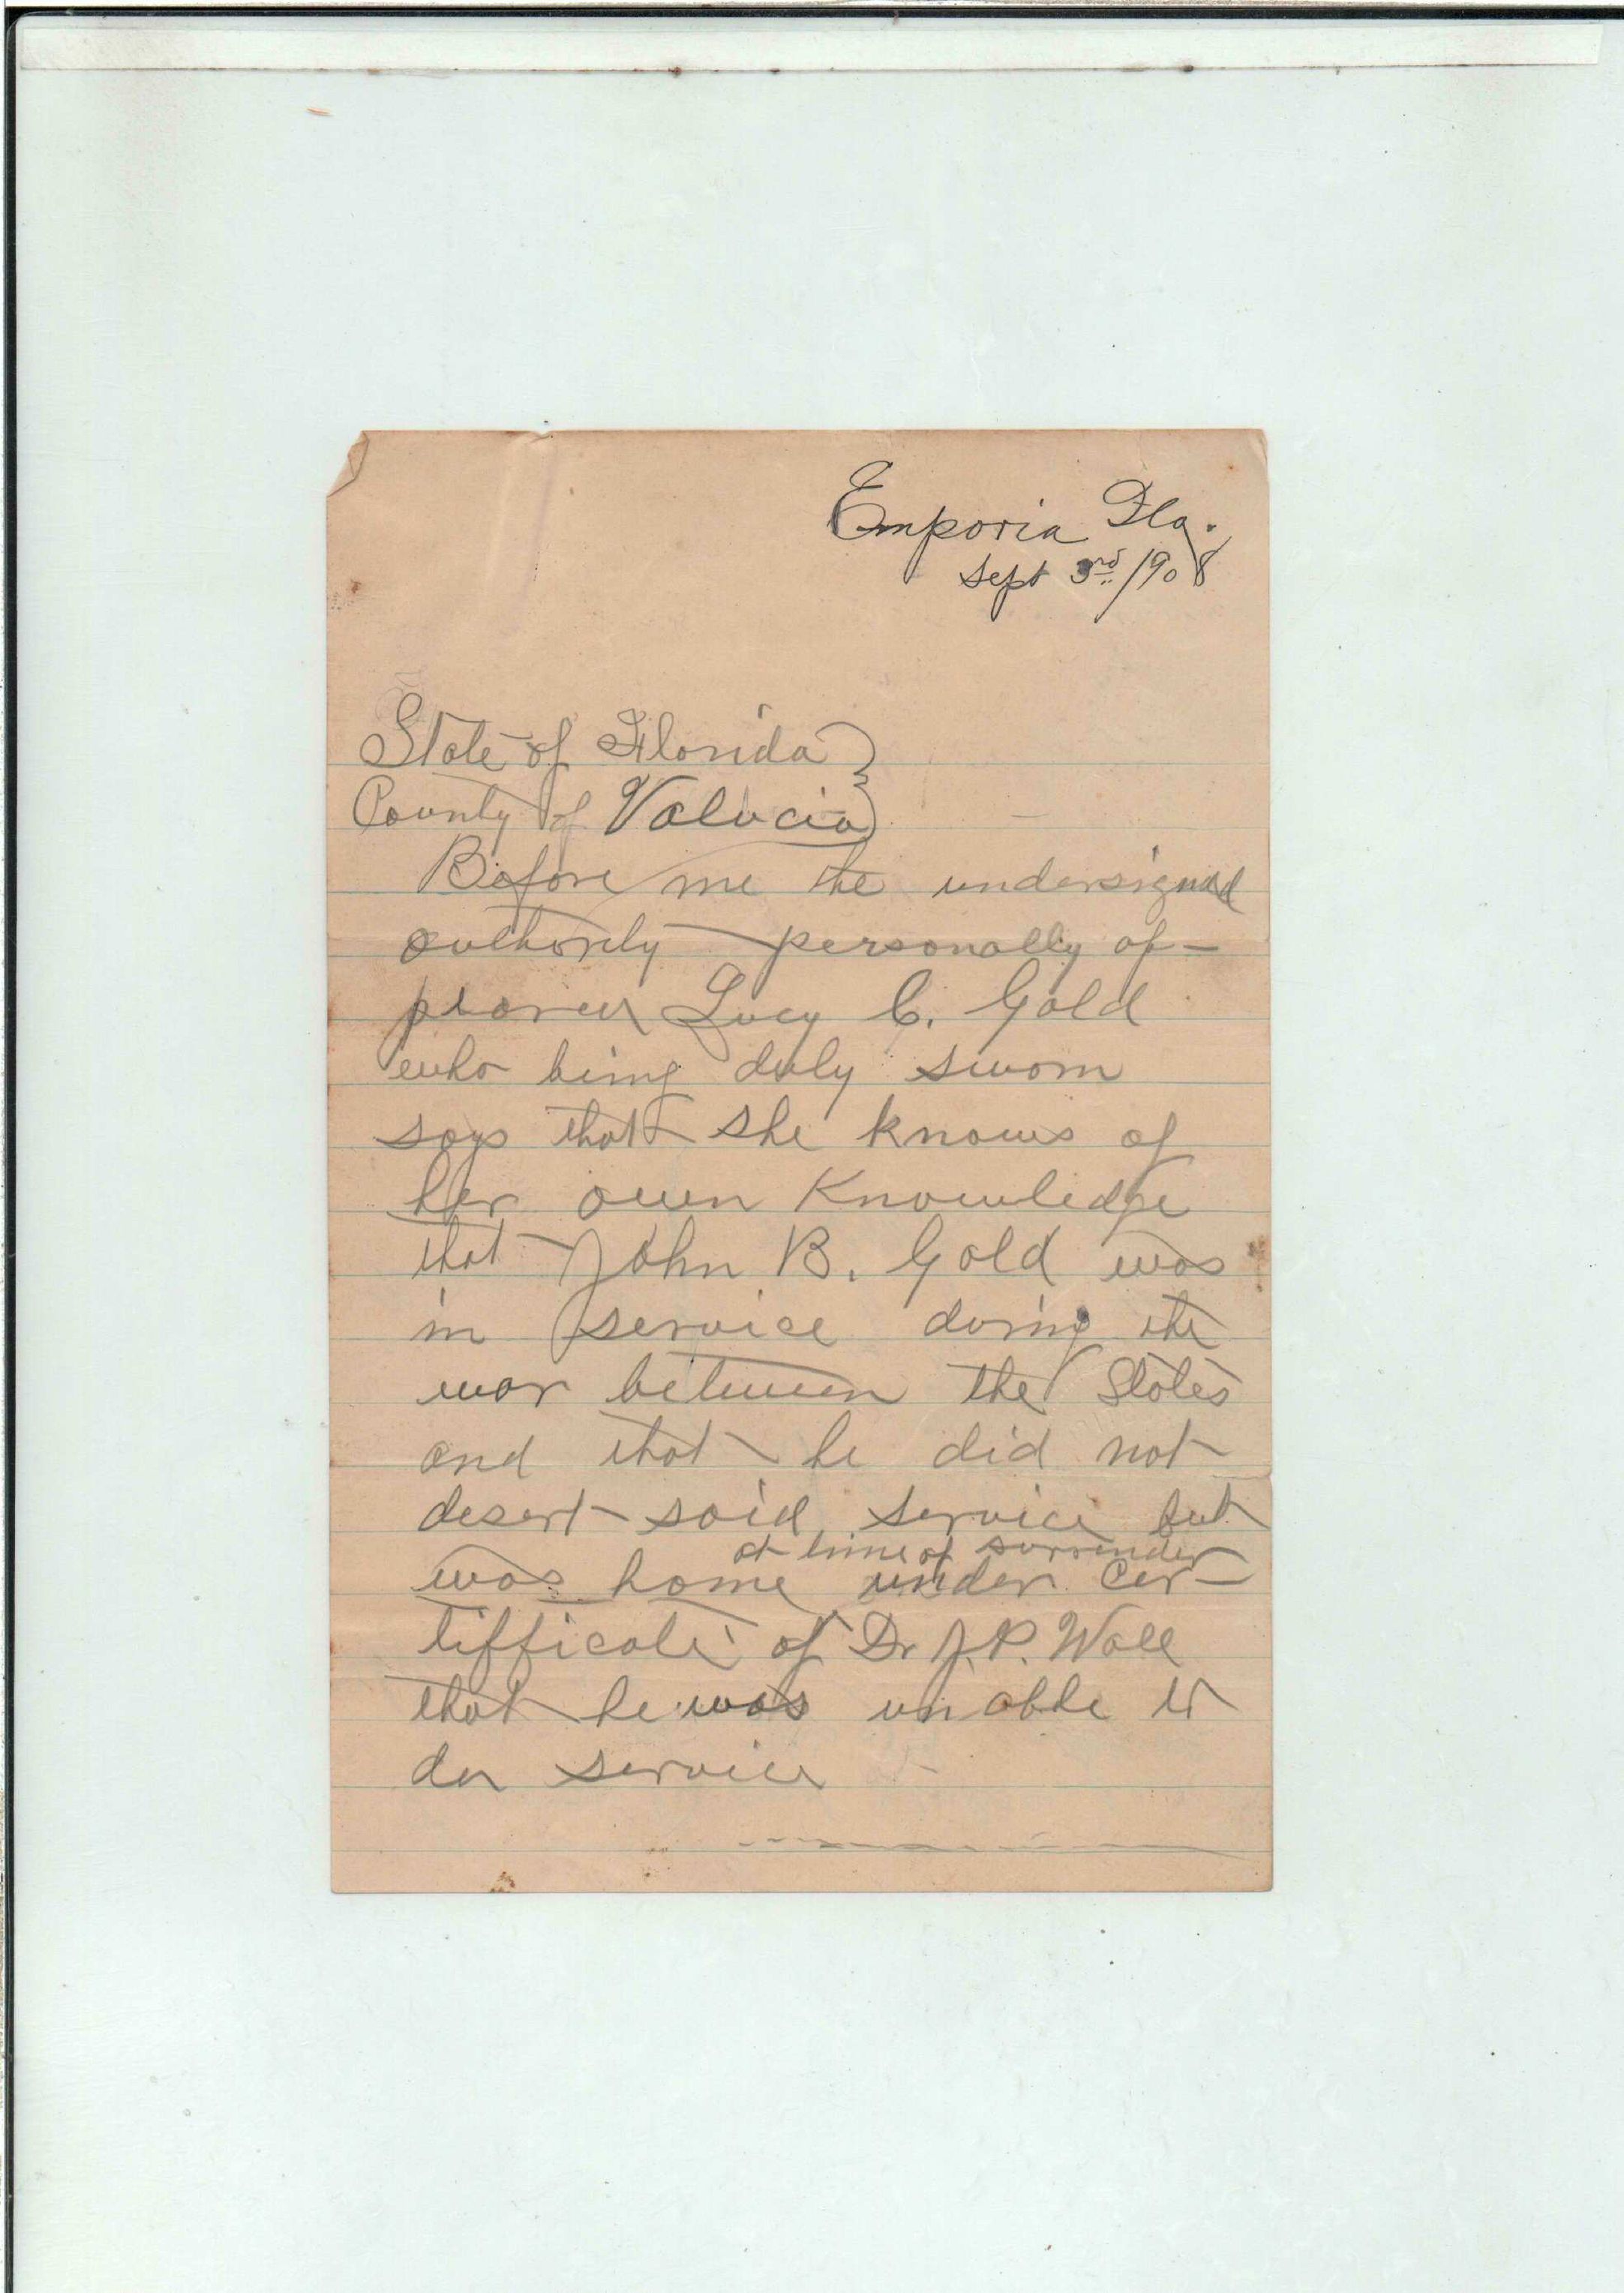 Emporia Fla.
Sept 3rd /908
State of Florida }
County of Valucia }
Before me the undersigned
authority personally ap-
peared Lucy C. Gold
who being duly sworn
says that she knows of
her own Knowledge
that John B. Gold was
in service during the
war between the States
and that he did not
desert said service but
at time of surrender
was home under Cer-
tifficate of Dr J.P. Wall
that he was unable to
do service